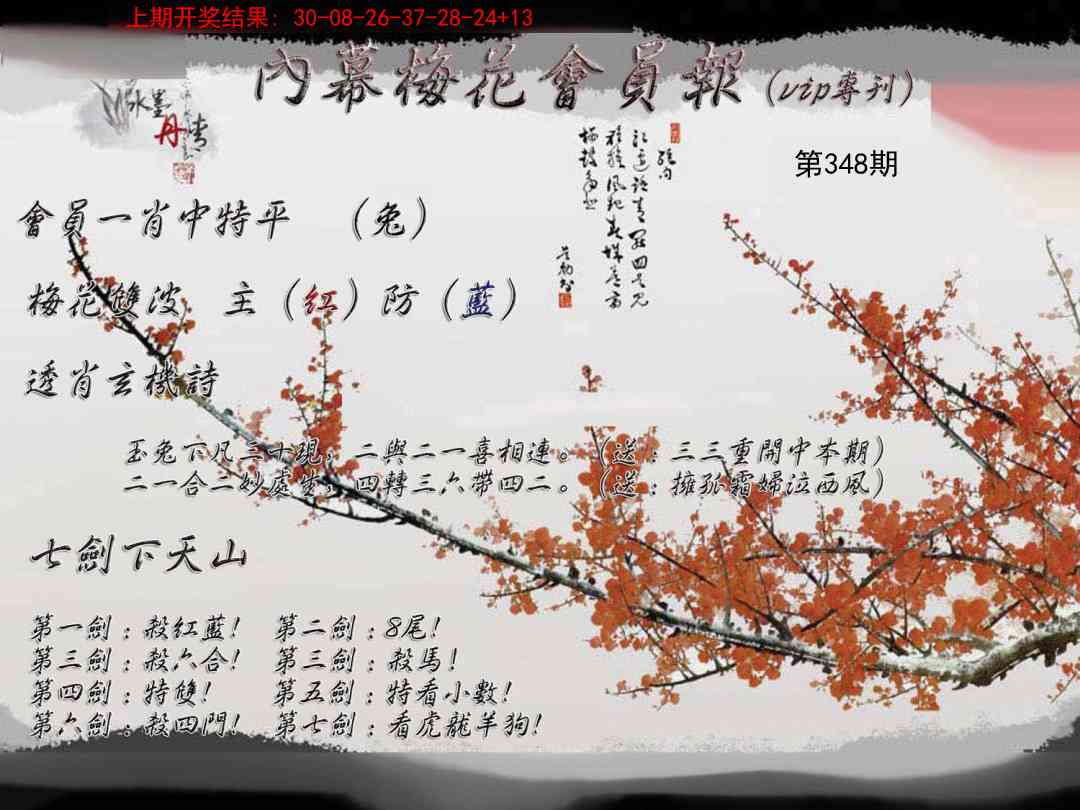 上期开奖结果: 30-08-26-37-28-24+13
內幕梅花會員報(vip專刊)
水墨
丹青
第348期
會員一肖中特平 (兔)
梅花雙波 主(紅)防(藍)
透肖玄機詩
玉兔下凡三十現,二與二一喜相連。(送:三三重開中本期)
二一合二妙處生,四轉三六帶四二。(送:擁孤霜婦泣西風)
七劍下天山
第一劍:殺紅藍! 第二劍:8尾!
第三劍:殺六合! 第三劍:殺馬!
第四劍:特雙! 第五劍:特看小數!
第六劍:殺四門! 第七劍:看虎龍羊狗!